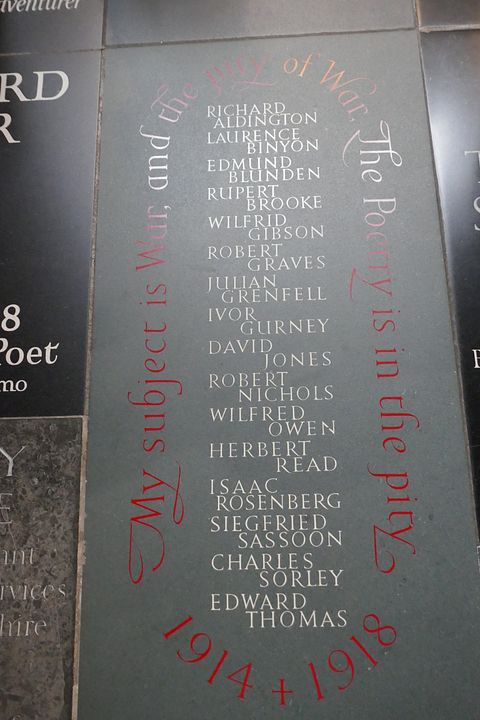 dventurer
RD
R
8
Poet
mo
Y
E
ant
rvices
hire
My subject is War, and the pity of War. The Poetry is in the pity.
RICHARD
ALDINGTON
LAURENCE
BINYON
EDMUND
BLUNDEN
RUPERT
BROOKE
WILFRID
GIBSON
ROBERT
GRAVES
JULIAN
GRENFELL
IVOR
GURNEY
DAVID
JONES
ROBERT
NICHOLS
WILFRED
OWEN
HERBERT
READ
ISAAC
ROSENBERG
SIEGFRIED
SASSOON
CHARLES
SORLEY
EDWARD
THOMAS
1914 + 1918